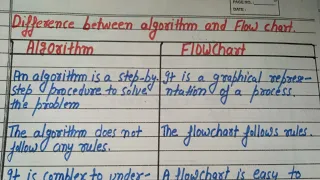 PAGE NO.
DATE
Difference between algorithm and Flow chart.
Algorithm
FlowChart
An algorithm is a step-by-
step procedure to solve
the problem
It is a graphical represe-
ntation of a process.
The algorithm does not
follow any rules.
The flowchart follows rules.
It is complex to under-
A flowchart is easy to